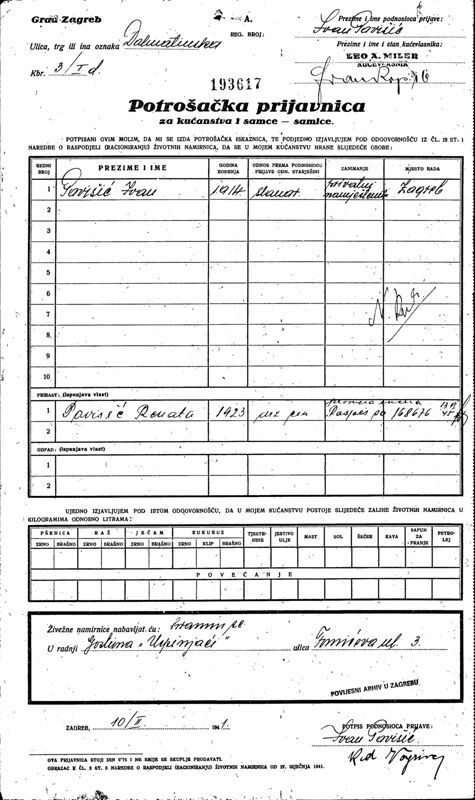 Grad Zagreb
A.
REG. BROJ:
193617
Ulica, trg ili ina oznaka Dalmatinska
Kbr. 3/I d
Prezime i ime podnosioca prijave:
Ivan Pavišić
Prezime i ime i stan kućevlasnika:
LEO A. MILER
KUĆEVLASNIK
Potrošačka prijavnica
za kućanstva i samce — samice.
POTPISANI OVIM MOLIM, DA MI SE IZDA POTROŠAČKA ISKAZNICA, TE PODJEDNO IZJAVLJUJEM POD ODGOVORNOŠĆU IZ ČL. 18 ST. 1
NAREDBE O RASPODJELI (RACIONIRANJU) ŽIVOTNIH NAMIRNICA, DA SE U MOJEM KUĆANSTVU HRANE SLIJEDEĆE OSOBE:
REDNI BROJ PREZIME I IME GODINA ROĐENJA ODNOS PREMA PODNOSIOCU PRIJAVE ODN. STARJEŠINI ZANIMANJE MJESTO RADA
1 Pavišić Ivan 1914 stanar privatni namještenik Zagreb
2
3
4
5
6
7
8
9
10
PRIRAST: (ispunjava vlast)
1 Pavišić Renata 1923 168676
2
OTPAD: (ispunjava vlast)
1
2
UJEDNO IZJAVLJUJEM POD ISTOM ODGOVORNOŠĆU, DA U MOJEM KUĆANSTVU POSTOJE SLIJEDEĆE ZALIHE ŽIVOTNIH NAMIRNICA U
KILOGRAMIMA ODNOSNO LITRAMA:
PŠENICA RAŽ JEČAM KUKURUZ TJESTENINE JESTIVO ULJE MAST SOL ŠEĆER KAVA SAPUN ZA PRANJE PETROLEJ
ZRNO BRAŠNO ZRNO BRAŠNO ZRNO BRAŠNO ZRNO KLIP BRAŠNO
POVEĆANJE
Živežne namirnice nabavljat ću: hranim se
U radnji Gostiona „Uspinjači" ulica Tomićeva ul. 3.
POVIJESNI ARHIV U ZAGREBU
ZAGREB, 10/II 1941.
POTPIS PODNOSIOCA PRIJAVE:
Ivan Pavišić
OVA PRIJAVNICA STOJI DIN 0'75 I NE SMIJE SE SKUPLJE PRODAVATI.
OBRAZAC K ČL. 2 ST. 2 NAREDBE O RASPODJELI (RACIONIRANJU) ŽIVOTNIH NAMIRNICA OD 27. SIJEČNJA 1941.